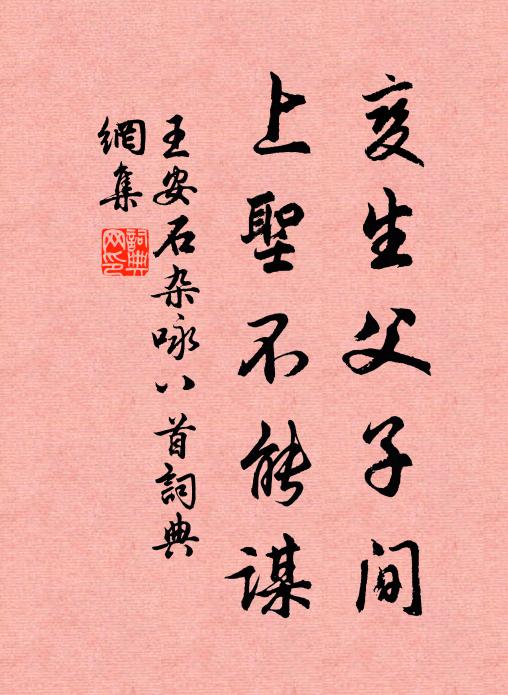 变生父子间
上聖不能谋
王安石杂咏八首詞典
網集
詞典網印